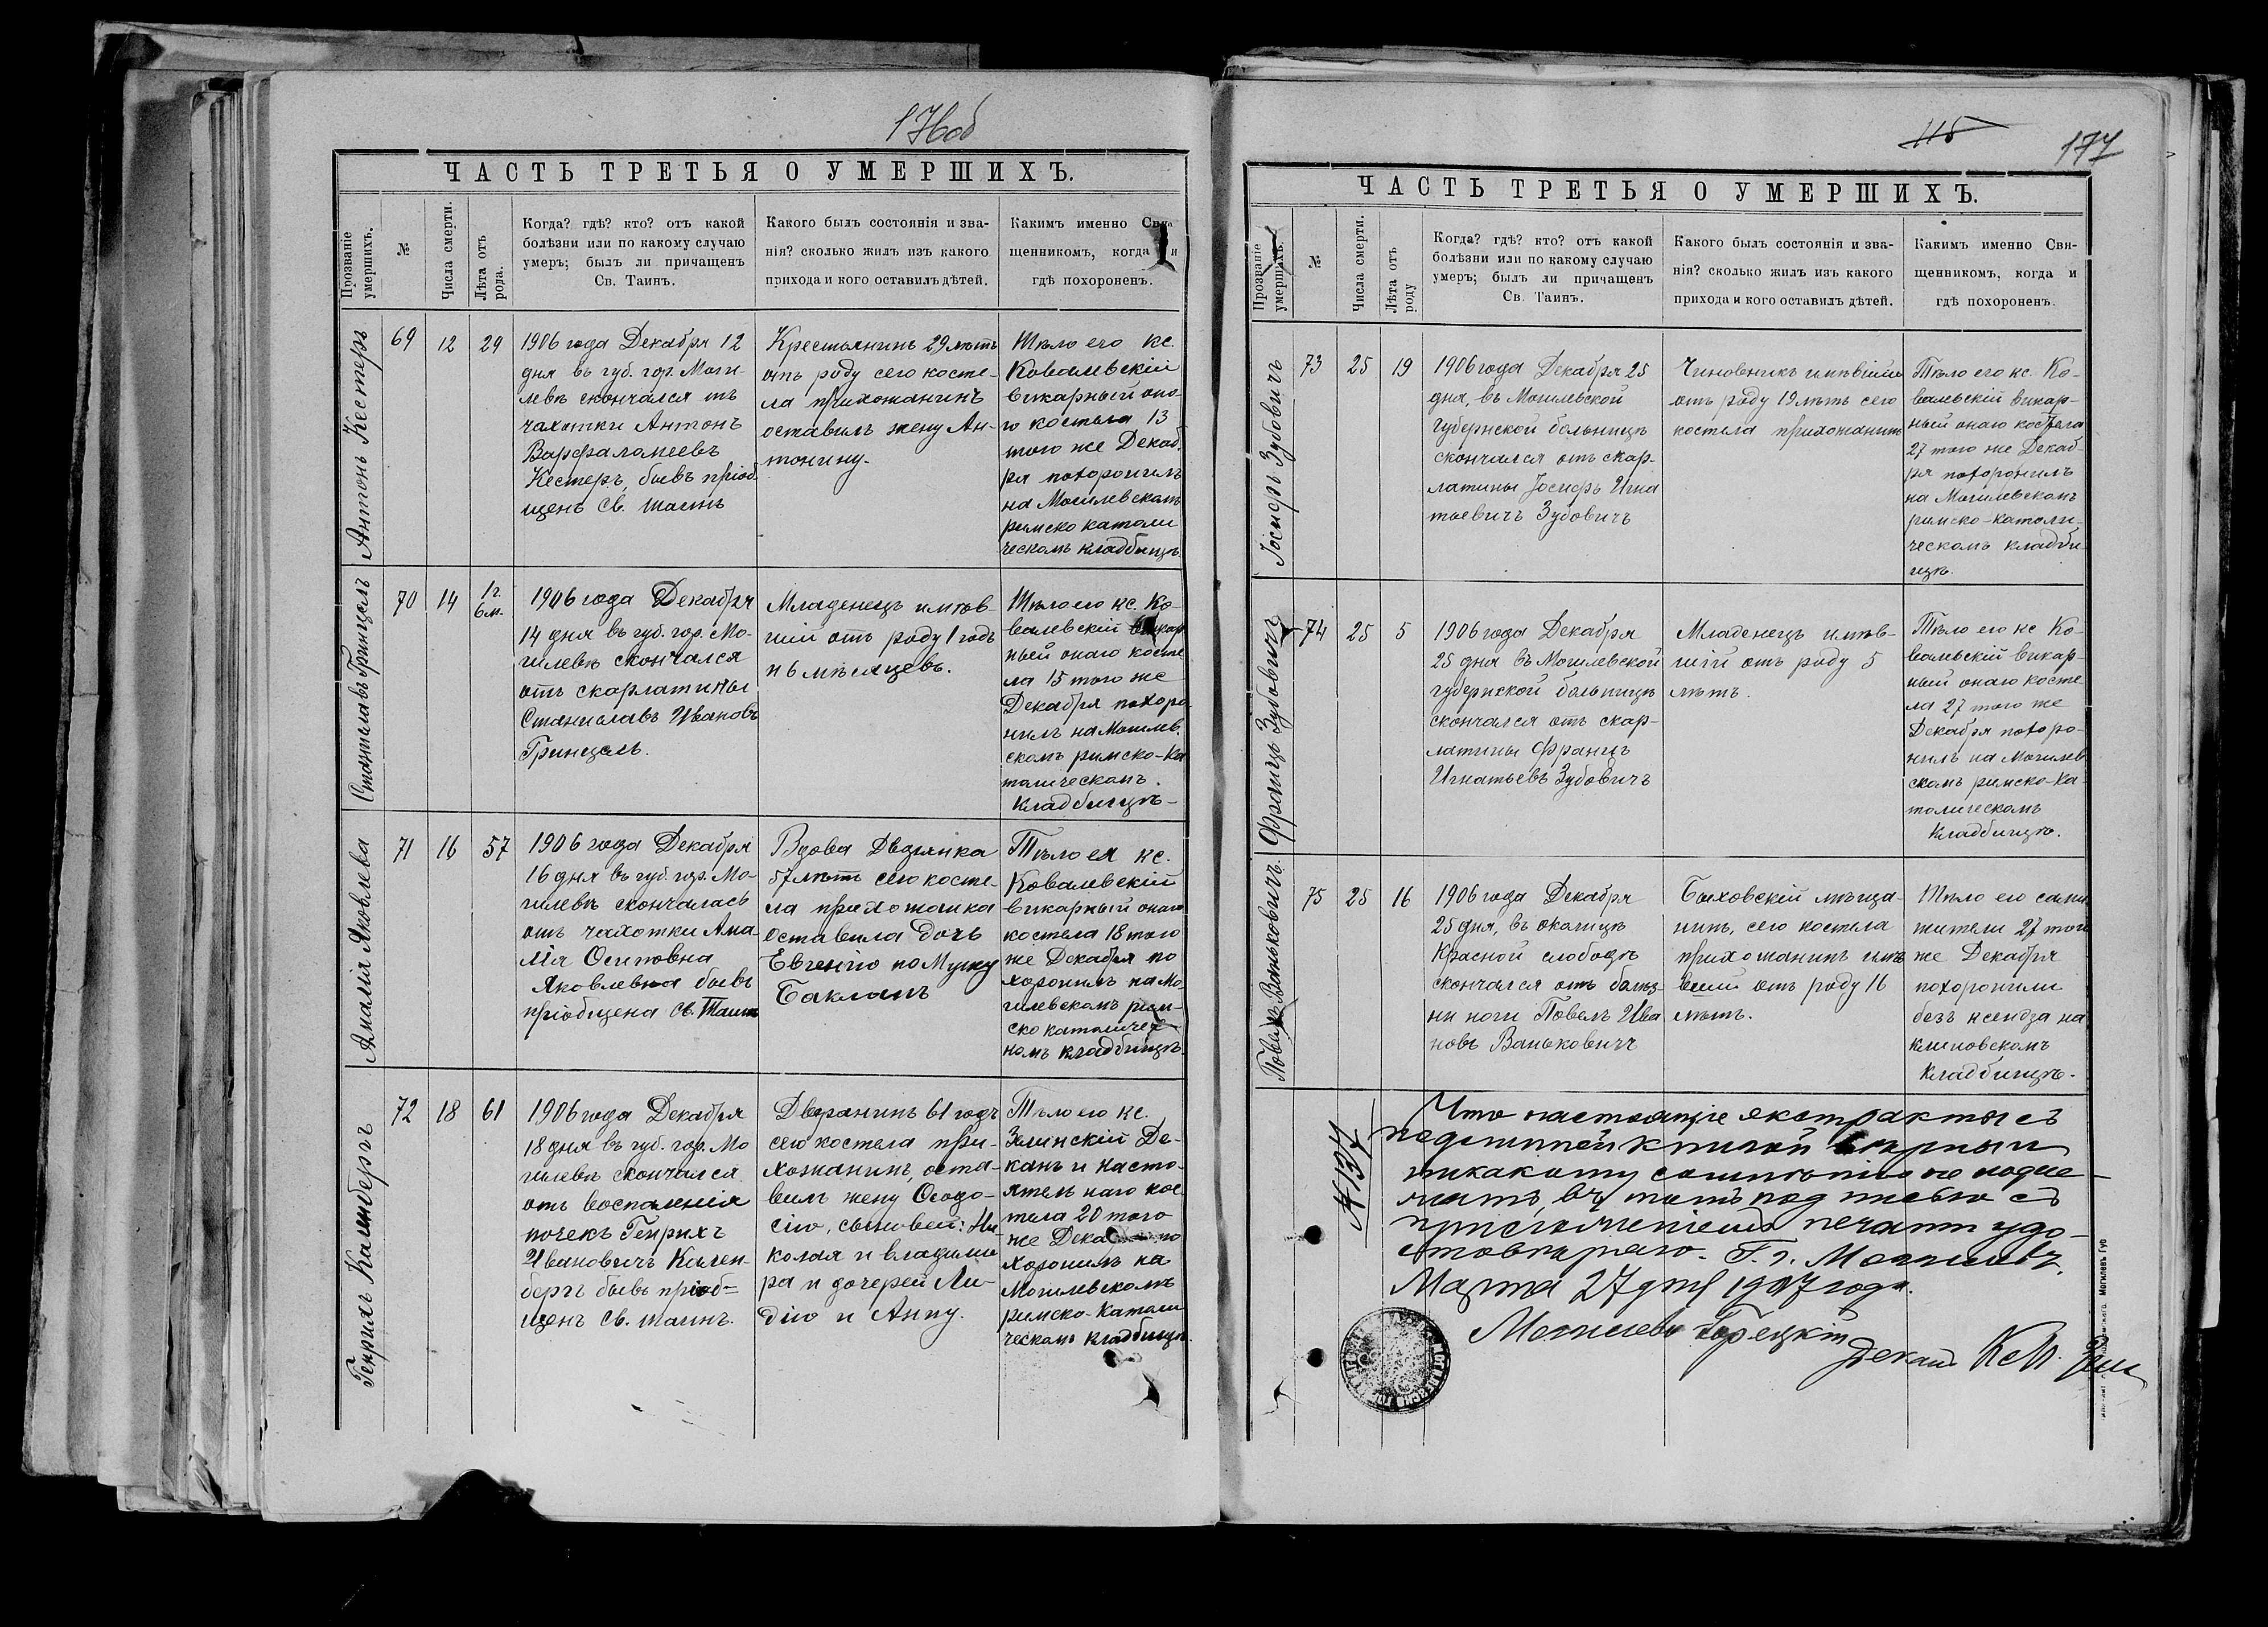 176об
ЧАСТЬ ТРЕТЬЯ О УМЕРШИХЪ.
Прозваніе умершихъ.
№
Числа смерти.
Лѣта отъ рода.
Когда? гдѣ? кто? отъ какой
болѣзни или по какому случаю
умеръ; былъ ли причащенъ
Св. Таинъ.
Какого былъ состоянія и зва-
нія? сколько жилъ изъ какого
прихода и кого оставилъ дѣтей.
Каимъ именно Свя-
щенникомъ, когда и
гдѣ похороненъ.
Антонъ Кестеръ
69
12
29
1906 года Декабря 12
дня въ губ. гор. Моги-
левѣ скончался отъ
чахотки Антонъ
Варфаламеевъ
Кестеръ, бывъ пріоб.
щенъ Св. таинъ
Крестьянинъ 29 лѣтъ
отъ роду сего косте-
ла прихожанинъ
оставилъ жену Ан-
тонину.
Тѣло его кс.
Ковалевскій
викарный она-
го костела 13
того же Декаб.
ря похоронилъ
на Могилевскомъ
римско католи
ческомъ кладбищѣ.
Станиславъ Гринцаль
70
14
1г. 6м.
1906 года Декабря
14 дня въ губ. гор. Мо-
гилевѣ скончался
отъ скарлатины
Станиславъ Ивановъ
Гринцаль.
Младенецъ имѣв-
шій отъ роду 1 годъ
и 6 мѣсяцевъ.
Тѣло его кс. Ко-
валевскій викар
ный онаго косте
ла 15 того же
Декабря похоро-
нилъ на Могилев.
скомъ римско-ка
толическомъ.
кладбищѣ-
Амалія Яковлева
71
16
57
1906 года Декабря
16 дня въ губ. гор. Мо-
гилевѣ скончалась
отъ чахотки Ама-
лія Осиповна
Яковлевна бывъ
пріобщена Св. Таинъ
Вдова Двдянка
57 лѣтъ сего косте-
ла прихожанка
оставила дочь
Евгенію по Мужу
Бакланъ
Тѣло ея кс.
Ковалевскій
викарный онаго
костела 18 того
же Декабря по
хоронилъ на Мо-
гилевскомъ рим-
ско католичес-
комъ кладбищѣ.
Генрихъ Каленбергъ
72
18
61
1906 года Декабря
18 дня въ губ. гор. Мо
гилевѣ скончался
отъ воспаленія
почекъ Генрихъ
Ивановичъ Кален-
бергъ бывъ пріоб=
щенъ Св. таинъ.
Дворянинъ 61 годъ
сего костела при-
хожанинъ, оста-
вилъ жену Феодо-
сію, сыновей: Ни
колая и Владими
ра и дочерей Ли-
дію и Анну.
Тѣло его кс.
Зелинскій Де-
канъ и насто-
ятель наго кос
тела 20 того
же Дека по
хоронилъ на
Могилевскомъ
римско-католи
ческомъ кладбищѣ.
115
177
ЧАСТЬ ТРЕТЬЯ О УМЕРШИХЪ.
Прозваніе умершихъ.
№
Числа смерти.
Лѣта отъ роду
Когда? гдѣ? кто? отъ какой
болѣзни или по какому случаю
умеръ; былъ ли причащенъ
Св. Таинъ.
Какого былъ состоянія и зва-
нія? сколько жилъ изъ какого
прихода и кого оставилъ дѣтей.
Каимъ именно Свя-
щенникомъ, когда и
гдѣ похороненъ.
Іосифъ Зубовичъ
73
25
19
1906 года Декабря 25
дня, въ Могилевской
губернской больницѣ
скончался отъ скар-
латины Іосифъ Игна
тьевичъ Зубовичъ
Чиновникъ имѣвшій
отъ роду 19 лѣтъ сего
костела прихожанинъ
Тѣло его кс. Ко-
валевскій викар-
ный онаго костела
27 того же Декаб-
ря похоронилъ
на Могилевскомъ
римско-католи-
ческомъ кладби-
щѣ.
Францъ Зубовичъ
74
25
5
1906 года Декабря
25 дня въ Могилевской
губернской больницѣ
скончался отъ скар-
латины Францъ
Игнатьевъ Зубовичъ
Младенецъ имѣв-
шій отъ роду 5
лѣтъ.
Тѣло его кс Ко-
валевскій викар-
ный онаго косте
ла 27 того же
Декабря похоро-
нилъ на Могилев
скомъ римско-ка-
толическомъ
кладбищѣ.
Павелъ Ваньковичъ.
75
25
16
1906 года Декабря
25 дня, въ околицѣ
Красной слободѣ
скончался отъ болѣз-
ни ноги Павелъ Ива
новъ Ваньковичъ
Быховскій мѣща-
нинъ, сего костела
прихожанинъ имѣ
вшій отъ роду 16
лѣтъ.
Тѣло его сами
жители 27 того
же Декабря
похоронили
безъ ксендза на
климовскомъ
кладбищѣ.
№ 137
Что настоящіе экстракты съ
подлинной книгой вѣрны и
никакому сомнѣнію не подле
жатъ, въ томъ подписью съ
приложеніемъ печати удо-
стовѣряю. Г. г. Могилевъ.
Марта 27 дня 1907 года.
Могилево Горецкій
Деканъ Кс М. Зели